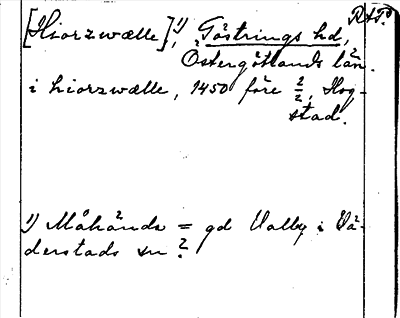 RAP.
[Hiorzwælle]¹⁾, Göstrings hd,
Östergötlands län.
i hiorzwælle, 1450 före 2/2, Hog-
stad.
1) Måhända = gd Valby i Vä-
derstads sn?